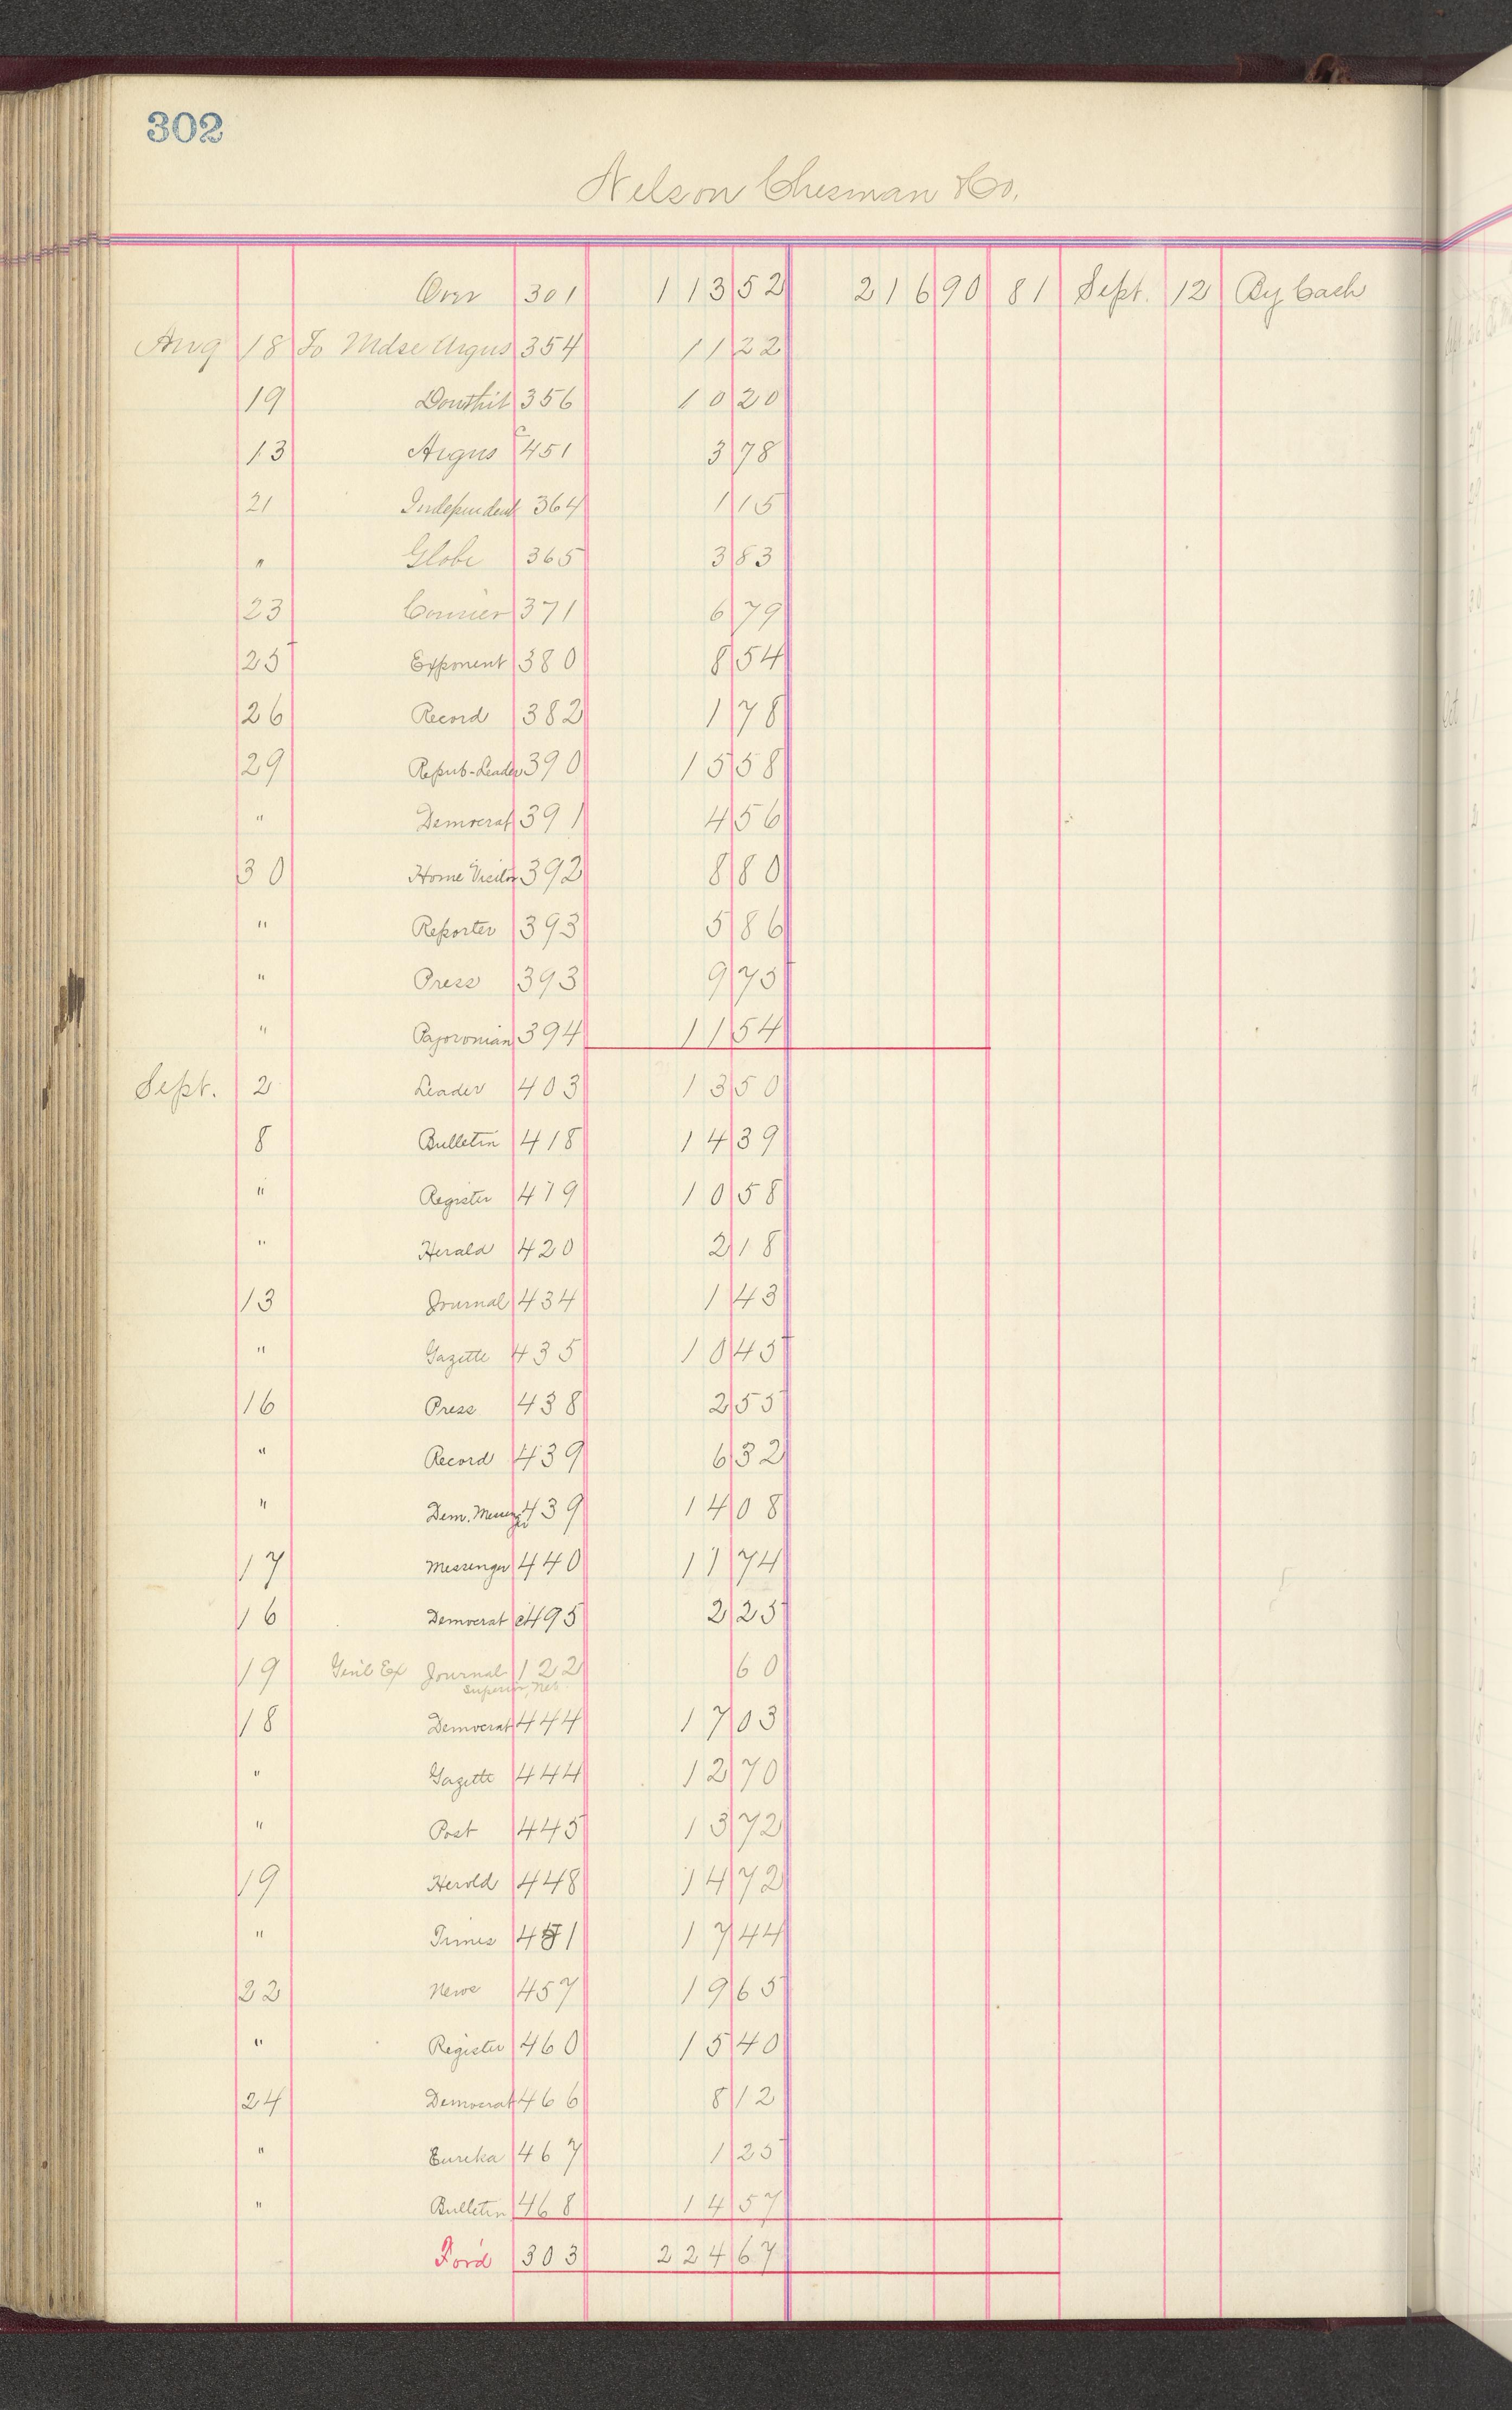 302
Nelson Chesman & Co.
Over 301 113 52 216 90 81 Sept. 12 By Cash
Aug 18 To Mdse Argus 354 11 22
19 Douthit 356 10 20
13 Argus C 451 3 78
21 Independent 364 1 15
" Globe 365 3 83
23 Courier 371 6 79
25 Exponent 380 8 54
26 Record 382 1 78
29 Repub-Leader 390 15 58
" Democrat 391 4 56
30 Home Visitor 392 8 80
" Reporter 393 5 86
" Press 393 9 75
" Pajoronian 394 11 54
Sept. 2 Leader 403 13 50
8 Bulletin 418 14 39
" Register 419 10 58
" Herald 420 2 18
13 Journal 434 1 43
" Gazette 435 10 45
16 Press 438 2 55
" Record 439 6 32
" Dem. Messenger 439 14 08
17 Messenger 440 11 74
16 Democrat c 495 2 25
19 Gen'l Ex Journal 122 60
Superior, Neb.
18 Democrat 444 17 03
" Gazette 444 12 70
" Post 445 13 72
19 Herold 448 14 72
" Times 451 17 44
22 News 457 19 65
" Register 460 15 40
24 Democrat 466 8 12
" Eureka 467 1 25
" Bulletin 468 14 57
For'd 303 224 67